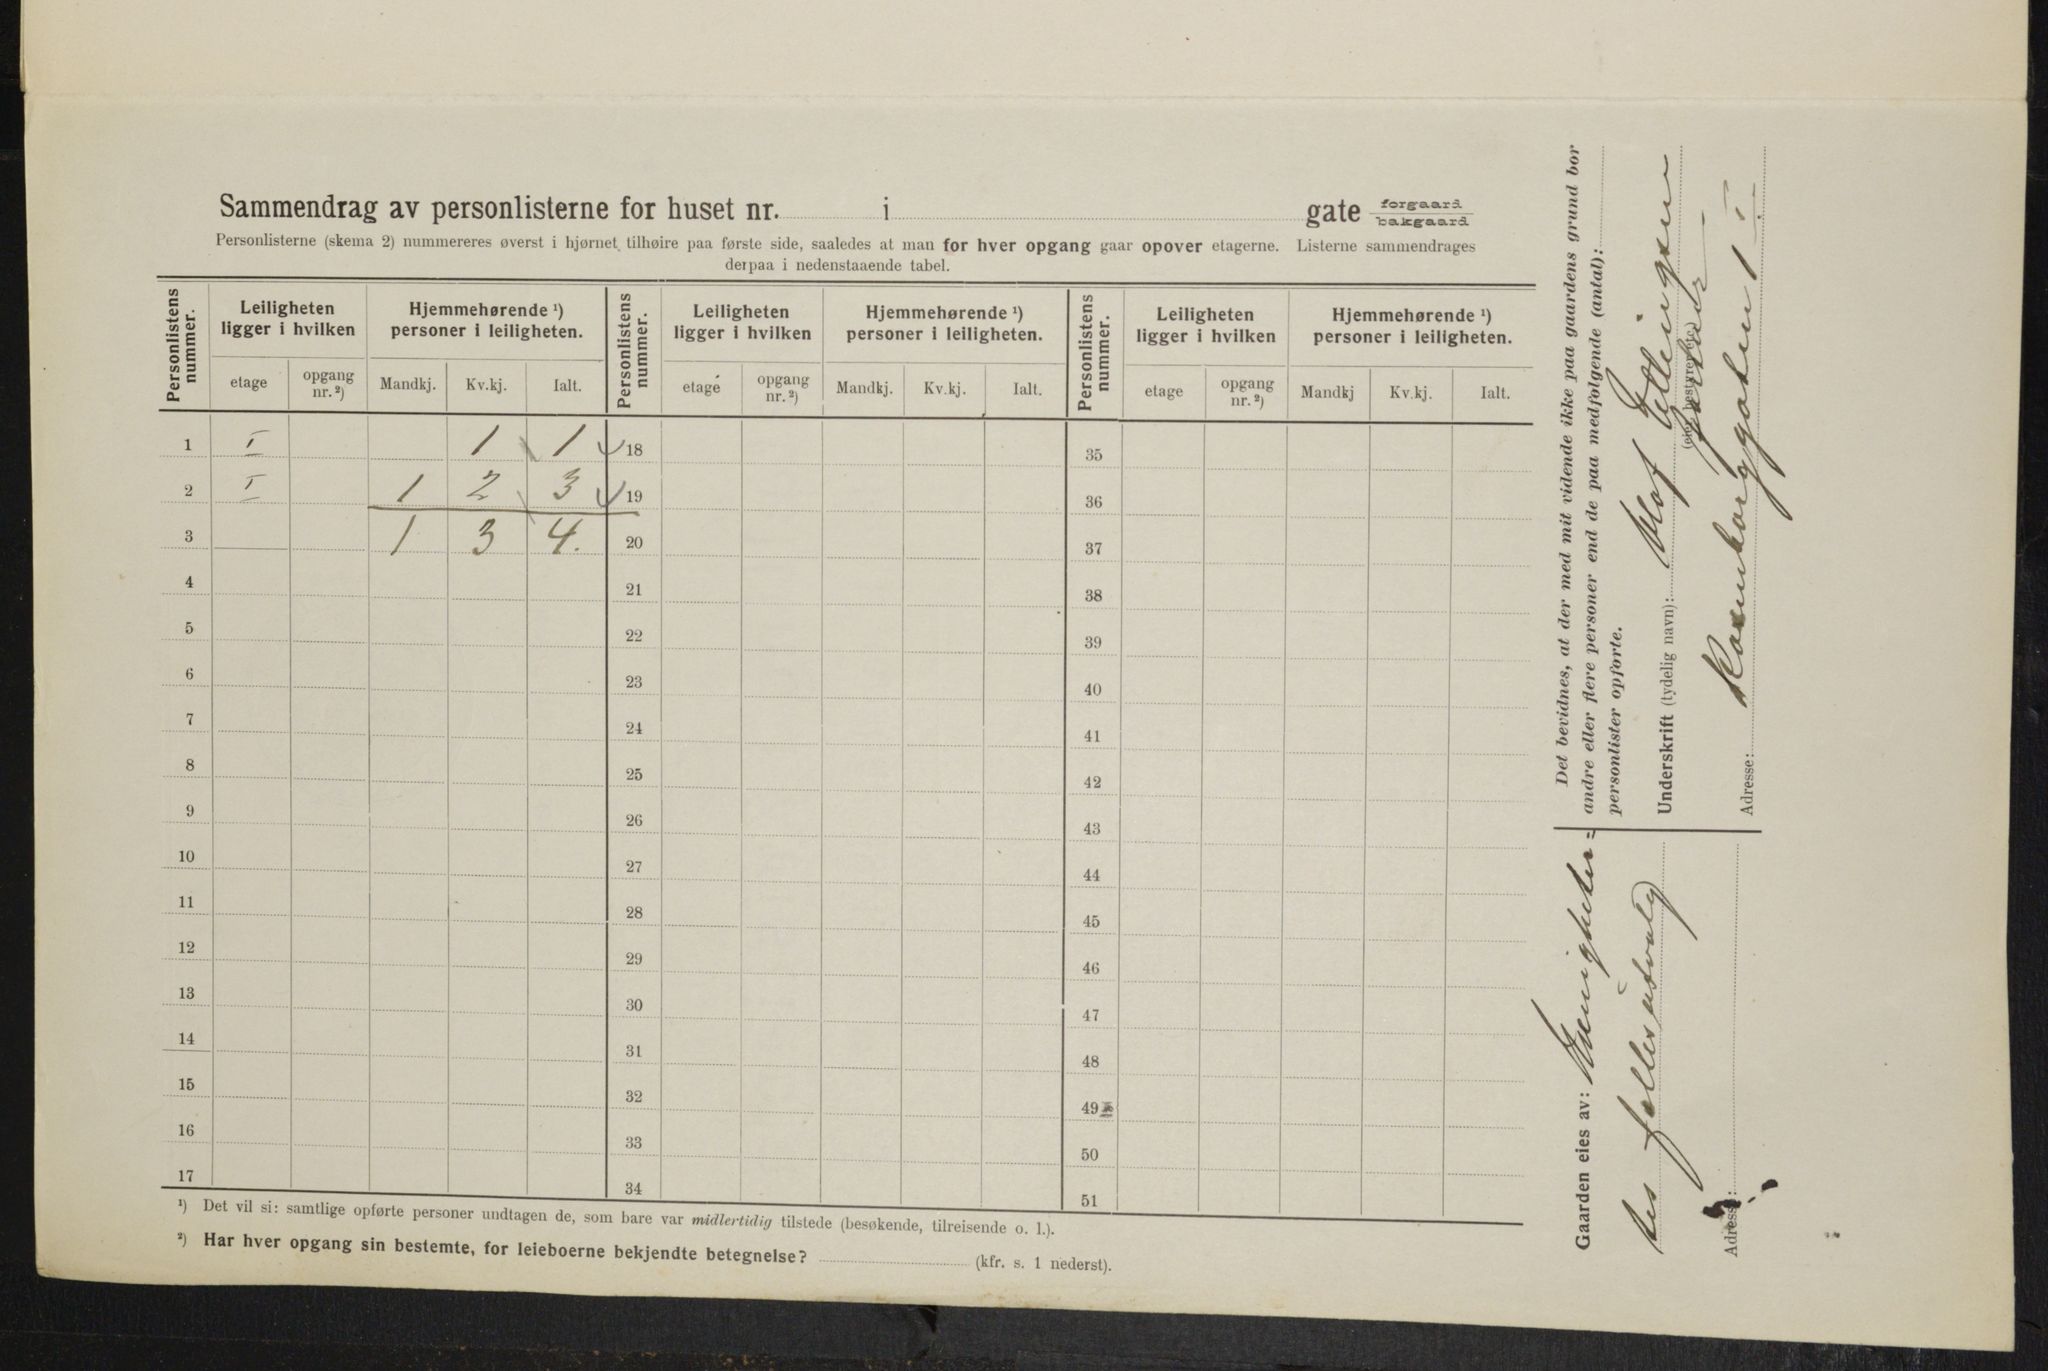 Sammendrag av personlisterne for huset nr. i gate forgaard bakgaard
Personlisterne (skema 2) nummereres øverst i hjørnet tilhøire paa første side, saaledes at man for hver opgang gaar opover etagerne. Listerne sammendrages
derpaa i nedenstaaende tabel.
Personlistens nummer. Leiligheten ligger i hvilken Hjemmehørende ¹) personer i leiligheten. Personlistens nummer. Leiligheten ligger i hvilken Hjemmehørende ¹) personer i leiligheten. Personlistens nummer. Leiligheten ligger i hvilken Hjemmehørende ¹) personer i leiligheten.
etage opgang nr. ²) Mandkj. Kv.kj. Ialt. etage opgang nr. ²) Mandkj. Kv.kj. Ialt. etage opgang nr. ²) Mandkj Kv.kj. Ialt.
1 I 1 1 18 35
2 I 1 2 3 19 36
3 1 3 4. 20 37
4 21 38
5 22 39
6 23 40
7 24 41
8 25 42
9 26 43
10 27 44
11 28 45
12 29 46
13 30 47
14 31 48
15 32 49
16 33 50
17 34 51
¹) Det vil si: samtlige opførte personer undtagen de, som bare var midlertidig tilstede (besøkende, tilreisende o. l.).
²) Har hver opgang sin bestemte, for leieboerne bekjendte betegnelse? (kfr. s. 1 nederst).
Det bevidnes, at der med mit vidende ikke paa gaardens grund bor
andre eller flere personer end de paa medfølgende (antal):
personlister opførte.
Underskrift (tydelig navn): Olof Ellingsen
(eier, bestyrer etc.)
Adresse: Rosenborggaten 1 I
Gaarden eies av: Menigheter=
nes fællesutvalg
Adresse: